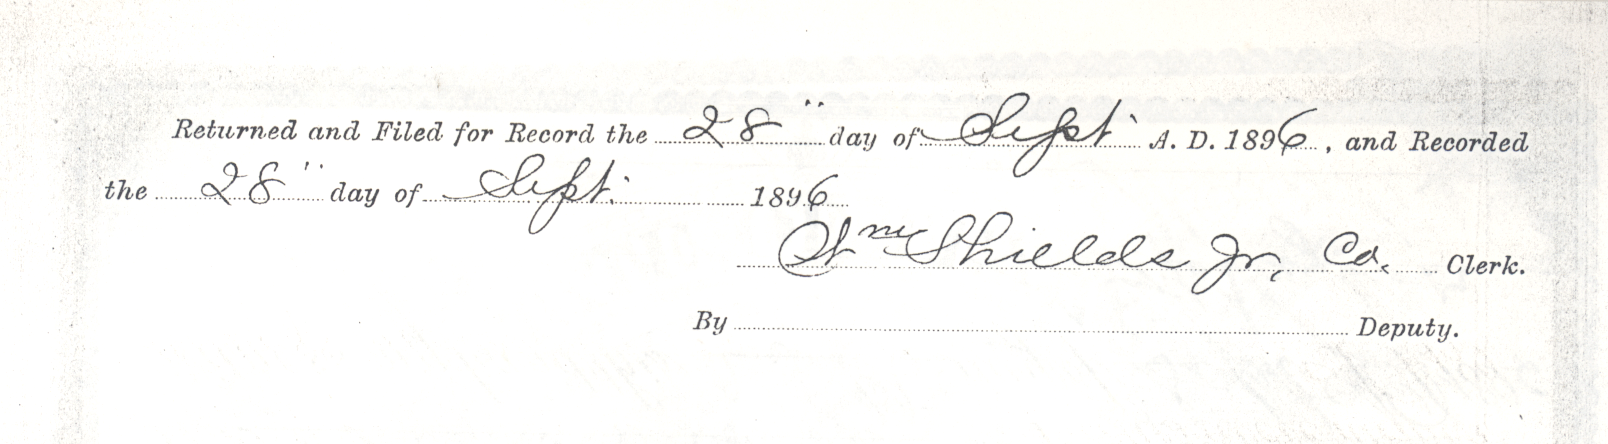 Returned and Filed for Record the 28" day of Sept. A. D. 1896, and Recorded
the 28" day of Sept. 1896
Wm Shields Jr. Co. Clerk.
By Deputy.